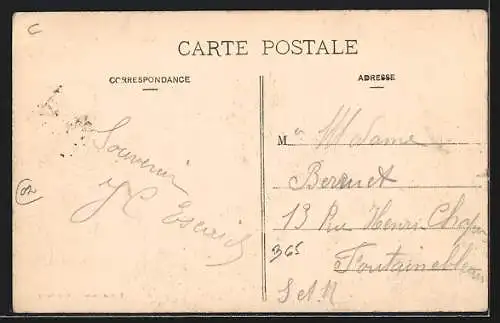 C
CARTE POSTALE
CORRESPONDANCE
ADRESSE
Souvenir
M a Madame
Berruet
02
13 Rue Henri
365
Fontainebleau
S et M